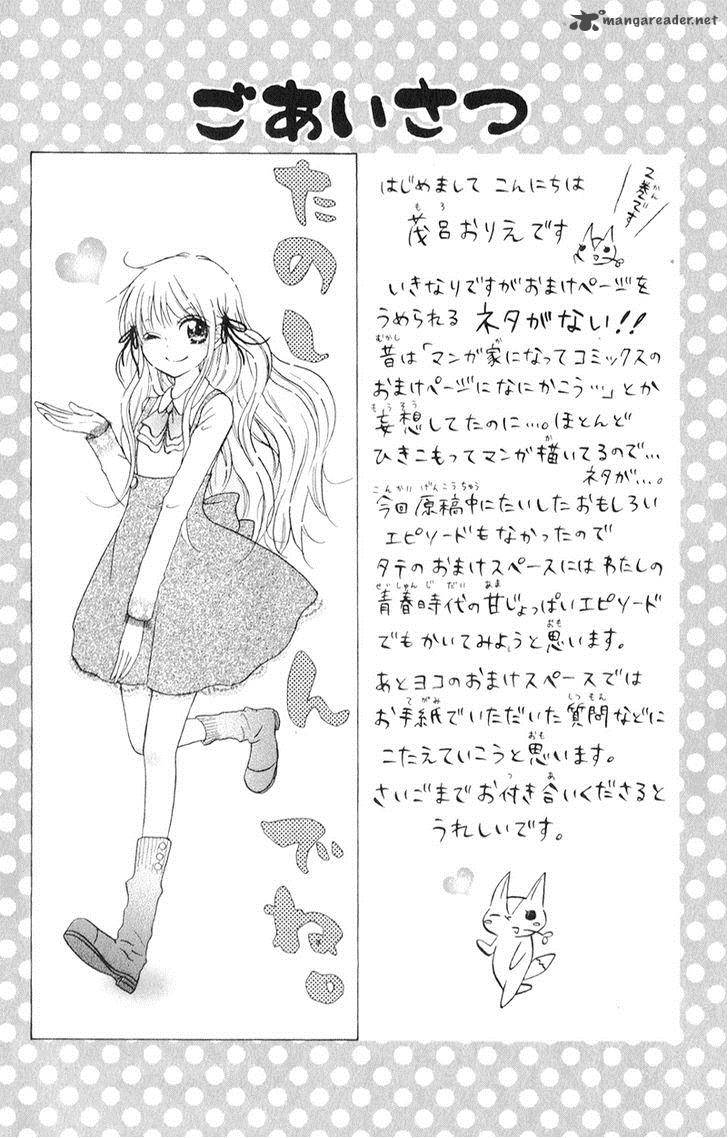 mangareader.net
ごあいさつ
たのしんでね。
はじめまして こんにちは
2巻です
茂呂おりえです
いきなりですがおまけページを
うめられる ネタがない!!
昔は「マンガ家になってコミックスの
おまけページになにかこう…」とか
妄想してたのに…。ほとんど
ひきこもってマンガ描いてるので…
ネタが…。
今回原稿中にたいしたおもしろい
エピソードもなかったので
タテのおまけスペースにはわたしの
青春時代の甘じょっぱいエピソード
でもかいてみようと思います。
あとヨコのおまけスペースでは
お手紙でいただいた質問などに
こたえていこうと思います。
さいごまでお付き合いくださると
うれしいです。